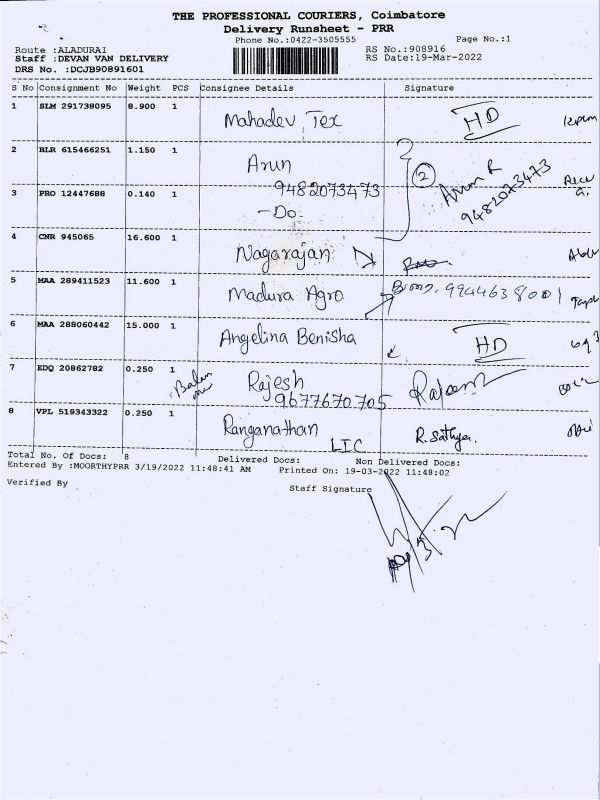 THE PROFESSIONAL COURIERS, Coimbatore
Delivery Runsheet - PRR
Phone No.:0422-3505555 Page No.:1
Route :ALADURAI RS No.:908916
Staff :DEVAN VAN DELIVERY RS Date:19-Mar-2022
DRS No. :DCJB90891601
S No Consignment No Weight PCS Consignee Details Signature
1 SLM 291738095 8.900 1 Mahadev Tex HD
2 BLR 615466251 1.150 1 Arun
9482073473
② Arun R
9482073473
3 PRO 12447688 0.140 1 -Do-
4 CNR 945065 16.600 1 Nagarajan
5 MAA 289411523 11.600 1 Madura Agro 9944638001
6 MAA 288060442 15.000 1 Angelina Benisha HD
7 EDQ 20862782 0.250 1 Rajesh
9677670705
8 VPL 519343322 0.250 1 Ranganathan R. Sathya.
LIC
Total No. Of Docs: 8 Delivered Docs: Non Delivered Docs:
Entered By :MOORTHYPRR 3/19/2022 11:48:41 AM Printed On: 19-03-2022 11:48:02
Verified By Staff Signature